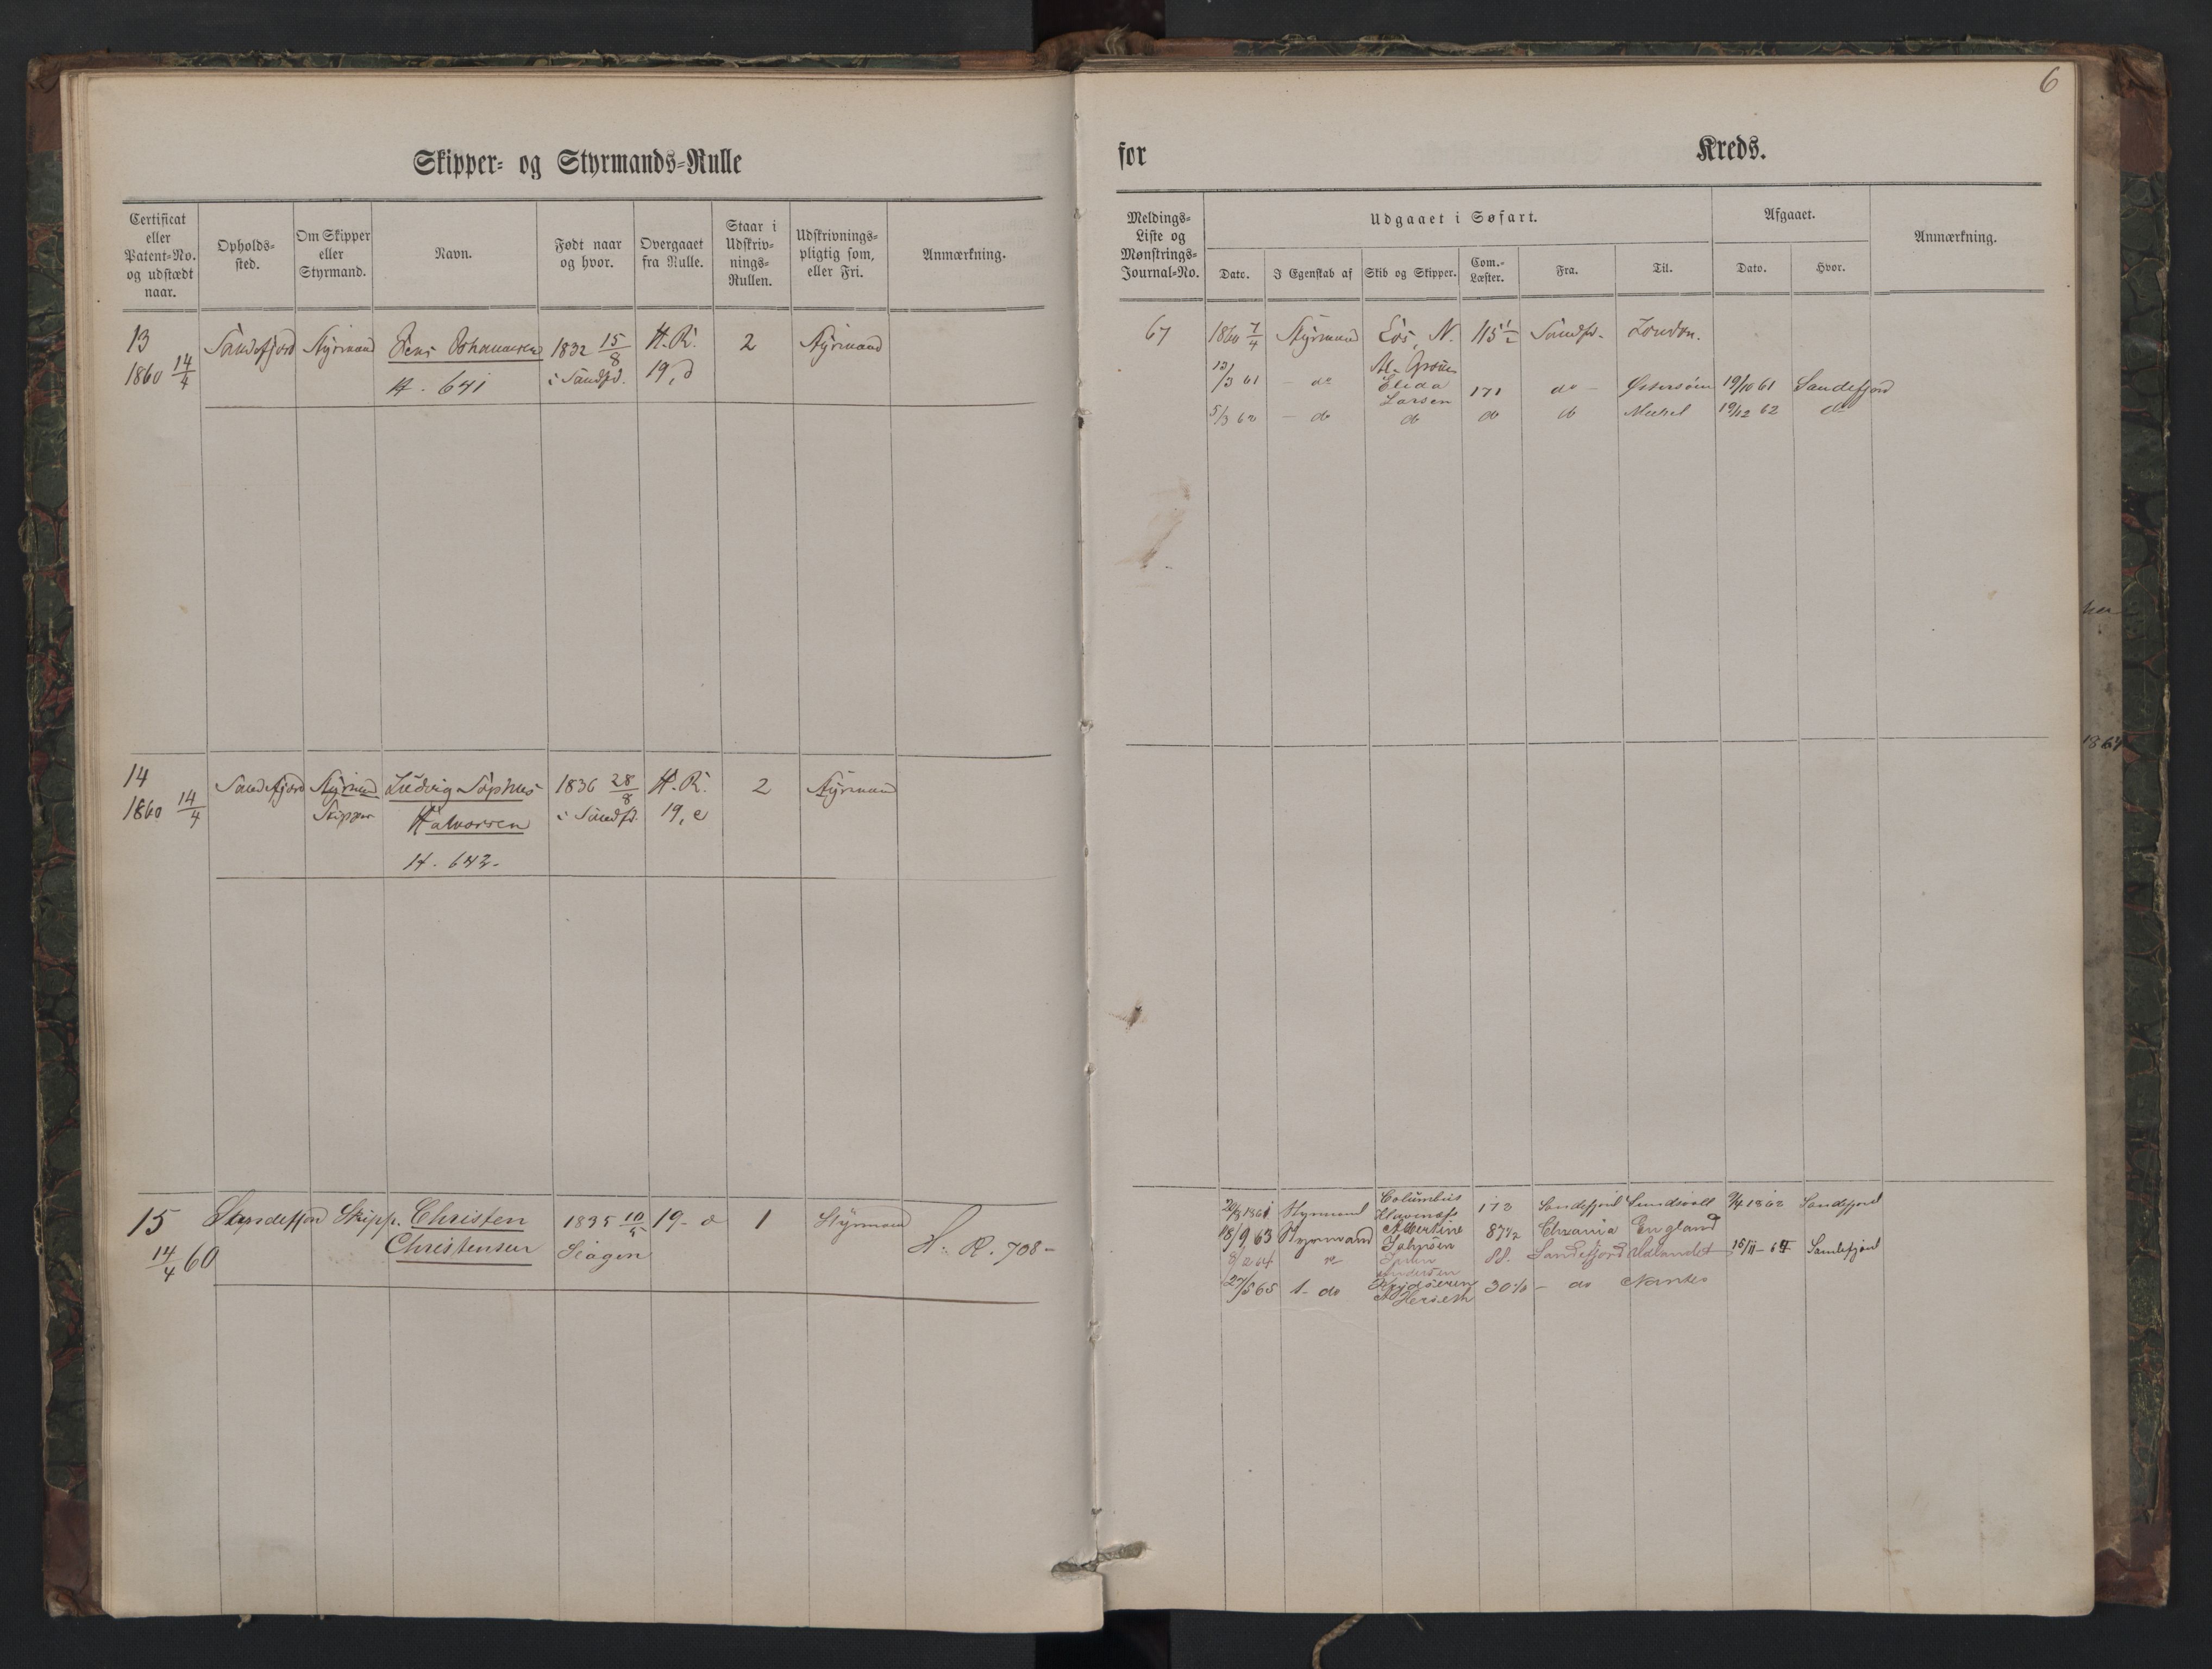 6
Skipper- og Styrmands-Rulle
for Kreds.
Certificat eller Patent-No. og udstædt naar.
Opholds-sted.
Om Skipper eller Styrmand.
Navn.
Født naar og hvor.
Overgaaet fra Rulle.
Staar i Udskriv-nings-Rullen.
Udskrivnings-pligtig som, eller Fri.
Anmærkning.
Meldings-Liste og Mønstrings-Journal-No.
Udgaaet i Søfart.
Dato.
I Egenskab af
Skib og Skipper.
Com.-Læster.
Fra.
Til.
Afgaaet.
Dato.
Hvor.
Anmærkning.
13 Sandefjord Styrmand Jens Johannesen 1832 15/8 H.R. 2 Styrmand
1860 14/4 H. 641 i Sandfd. 19,d
67 1860 7/4 Styrmand Eos, N. 115 1/2 Sandfd. London.
13/3 61 - do Elida 171 do - Østersøen 19/10 61 Sandefjord
Larsen
5/3 62 - do do do do 19/12 62 do
14 Sandefjord Styrmand Ludvig Sophus 1836 28/8 H.R. 2 Styrmand
1860 14/4 Skipper Halvorsen i Sandfd. 19,e
H. 642.
15 Sandefjord Skipp. Christen 1835 10/5 19- 1 Styrmand
14/4 60 Christensen H. R. 708-
1861 Styrmand Columbus Sandefjord Sundsvall 1862 Sandefjord
18/9 63 Styrmand Albertine 87 1/2 Chrania England
8/2 64 88. Sandefjord 15/11-64 Sandefjord
Andersen
27/5 65 1- do - do Nantes
her
1864